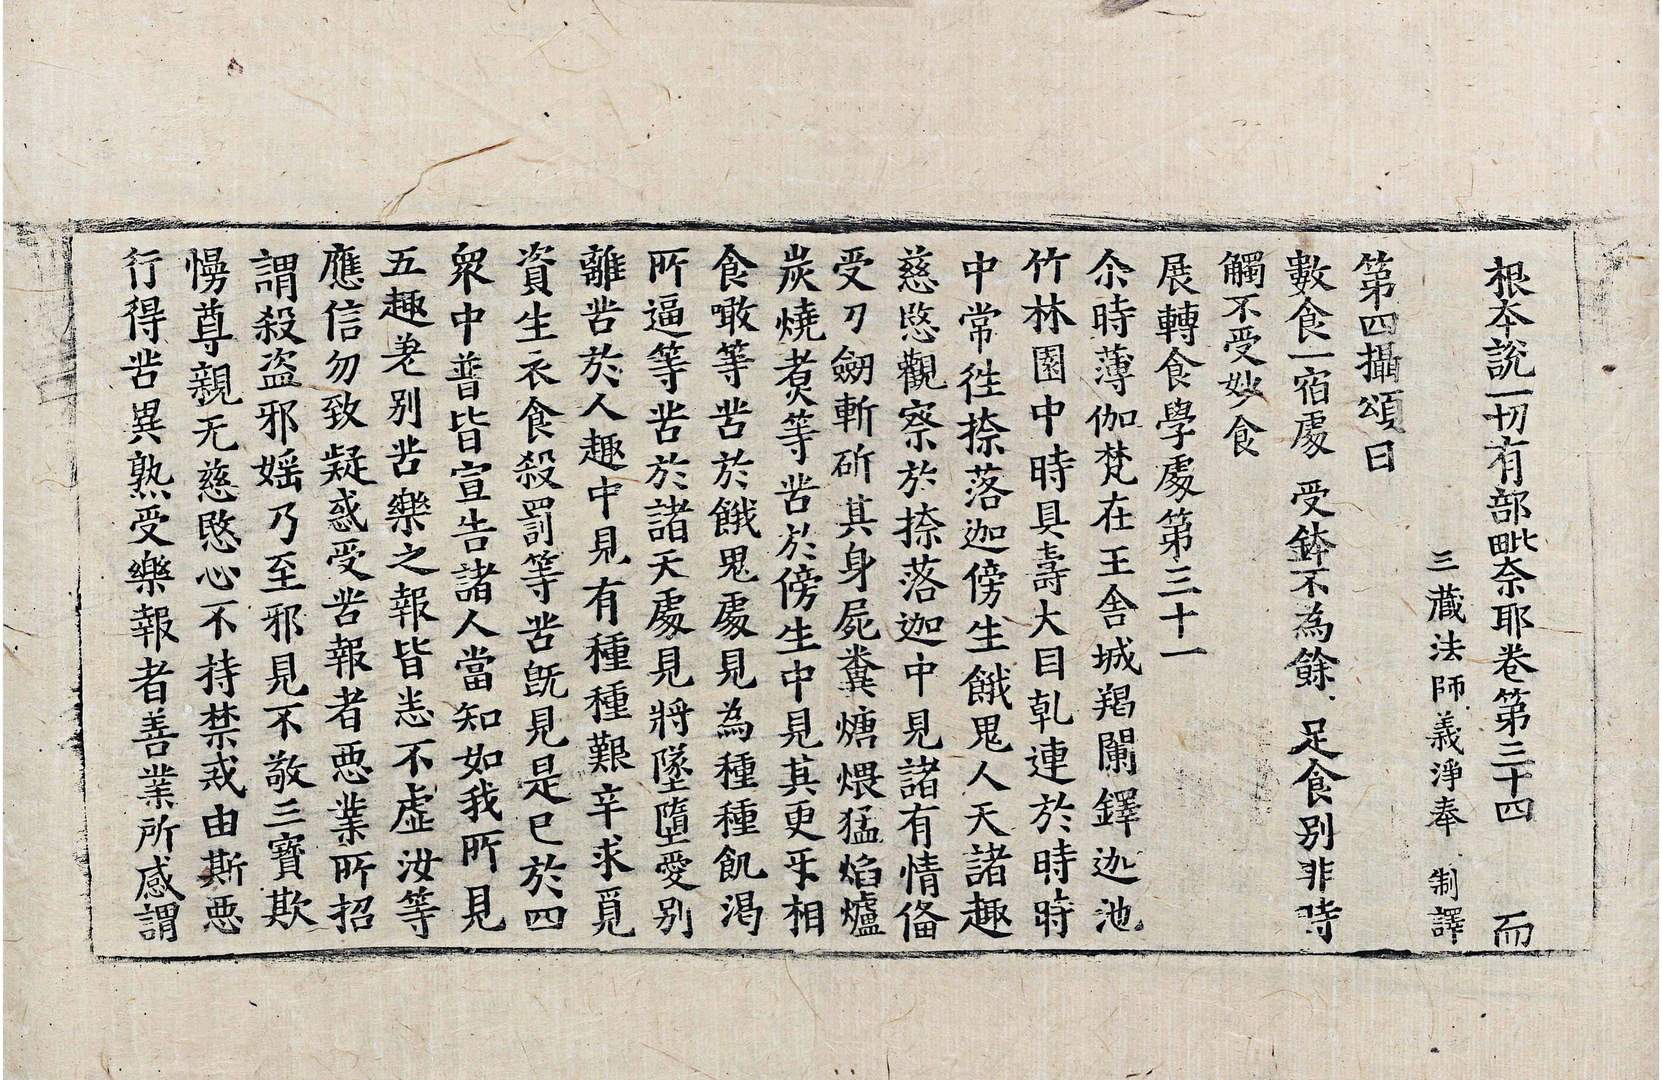 根本說一切有部毗奈耶卷第三十四 而
三藏法師義淨奉 制譯
第四攝頌曰
數食一宿處 受鉢不為餘 足食別非時
觸不受妙食
展轉食學處第三十一
尒時薄伽梵在王舍城羯闌鐸迦池
竹林園中時具壽大目乹連於時時
中常徃捺落迦傍生餓鬼人天諸趣
慈愍觀察於捺落迦中見諸有情俻
受刀劒斬斫其身屍糞煻煨猛焰爐
炭燒煮等苦於傍生中見其更牙相
食噉等苦於餓鬼處見為種種飢渴
所逼等苦於諸天處見將墜墮愛別
離苦於人趣中見有種種艱辛求覓
資生衣食殺罰等苦旣見是已於四
衆中普皆宣告諸人當知如我所見
五趣差別苦樂之報皆悉不虛汝等
應信勿致疑惑受苦報者惡業所招
謂殺盜邪婬乃至邪見不敬三寶欺
慢尊親无慈愍心不持禁戒由斯惡
行得苦異熟受樂報者善業所感謂